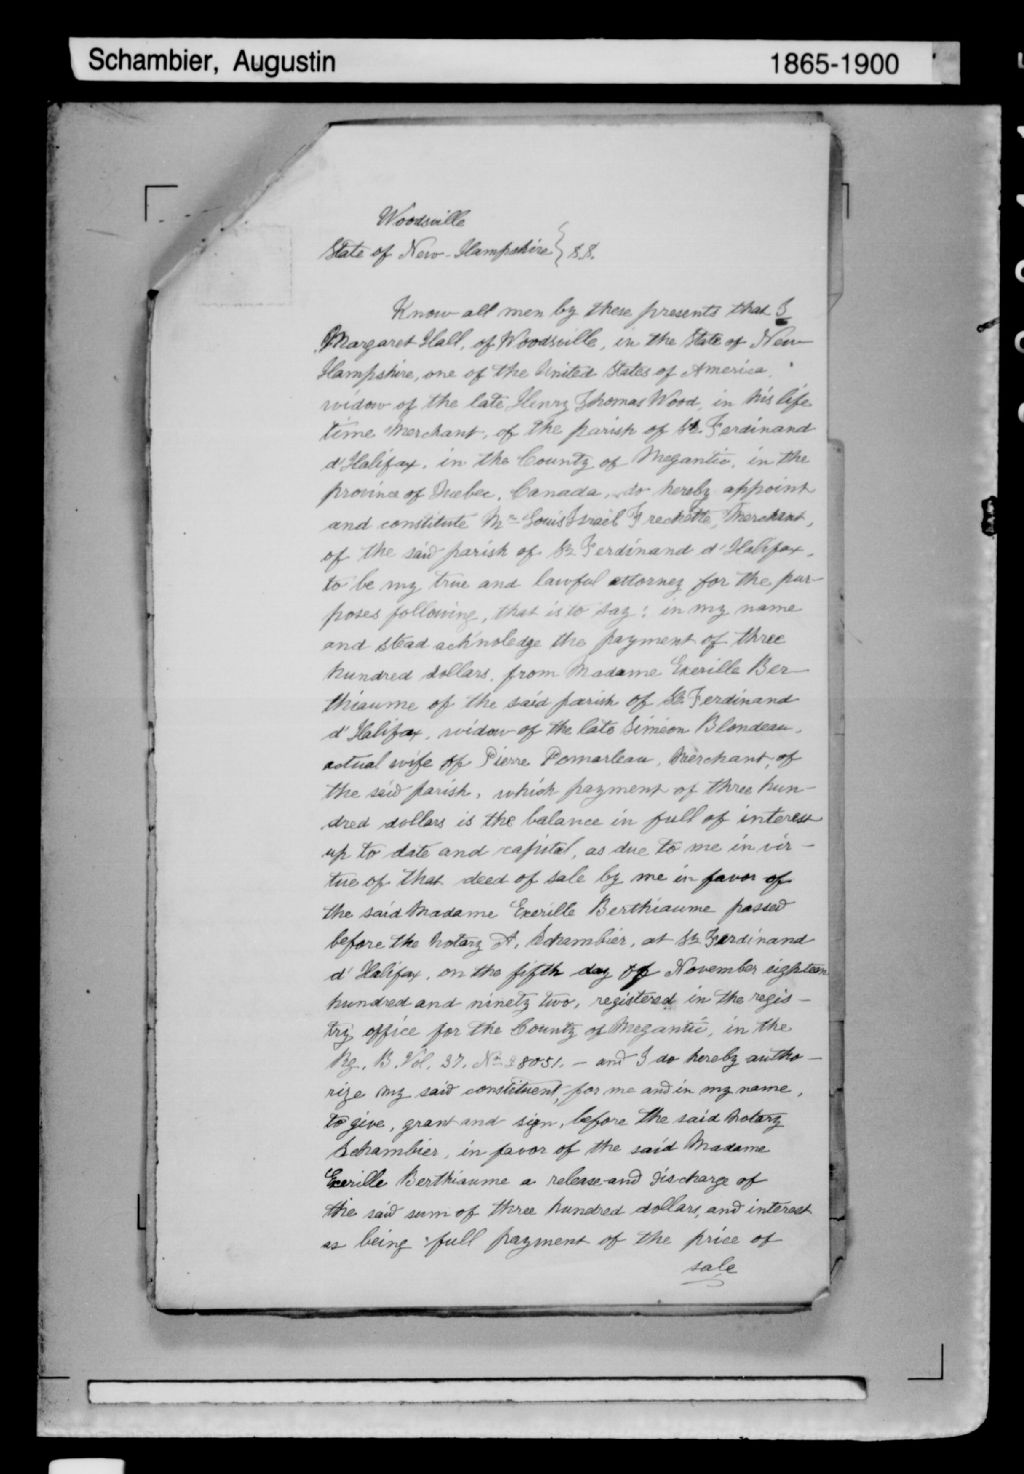 Schambier, Augustin 1865-1900
Woodsville
State of New-Hampshire } S.S.
Know all men by these presents that I
Margaret Hall, of Woodsville, in the State of New
Hampshire, one of the United States of America,
widow of the late Henry Thomas Wood, in his life
time Merchant, of the parish of St. Ferdinand
d'Halifax, in the County of Megantic, in the
province of Quebec, Canada, do hereby appoint
and constitute Mr Louis Israël Frechette, Merchant,
of the said parish of St Ferdinand d'Halifax,
to be my true and lawful attorney for the pur-
poses following, that is to say: in my name
and stead acknoledge the payment of three
hundred dollars, from Madame Exerille Ber-
thiaume of the said parish of St. Ferdinand
d'Halifax, widow of the late Siméon Blondeau,
actual wife of Pierre Pomarleau, Merchant, of
the said parish, which payment of three hun-
dred dollars is the balance in full of interest
up to date and capital, as due to me in vir-
tue of that deed of sale by me in favor of
the said Madame Exerille Berthiaume passed
before the Notary A. Schambier, at St Ferdinand
d'Halifax, on the fifth day of November eighteen
hundred and ninety two, registered in the regis-
try office for the County of Megantic, in the
Rg. B. Vol. 37. No 28051. - and I do hereby autho-
rize my said constituent, for me and in my name,
to give, grant and sign, before the said Notary
Schambier, in favor of the said Madame
Exerille Berthiaume a release and discharge of
the said sum of three hundred dollars, and interest
as being full payment of the price of
sale